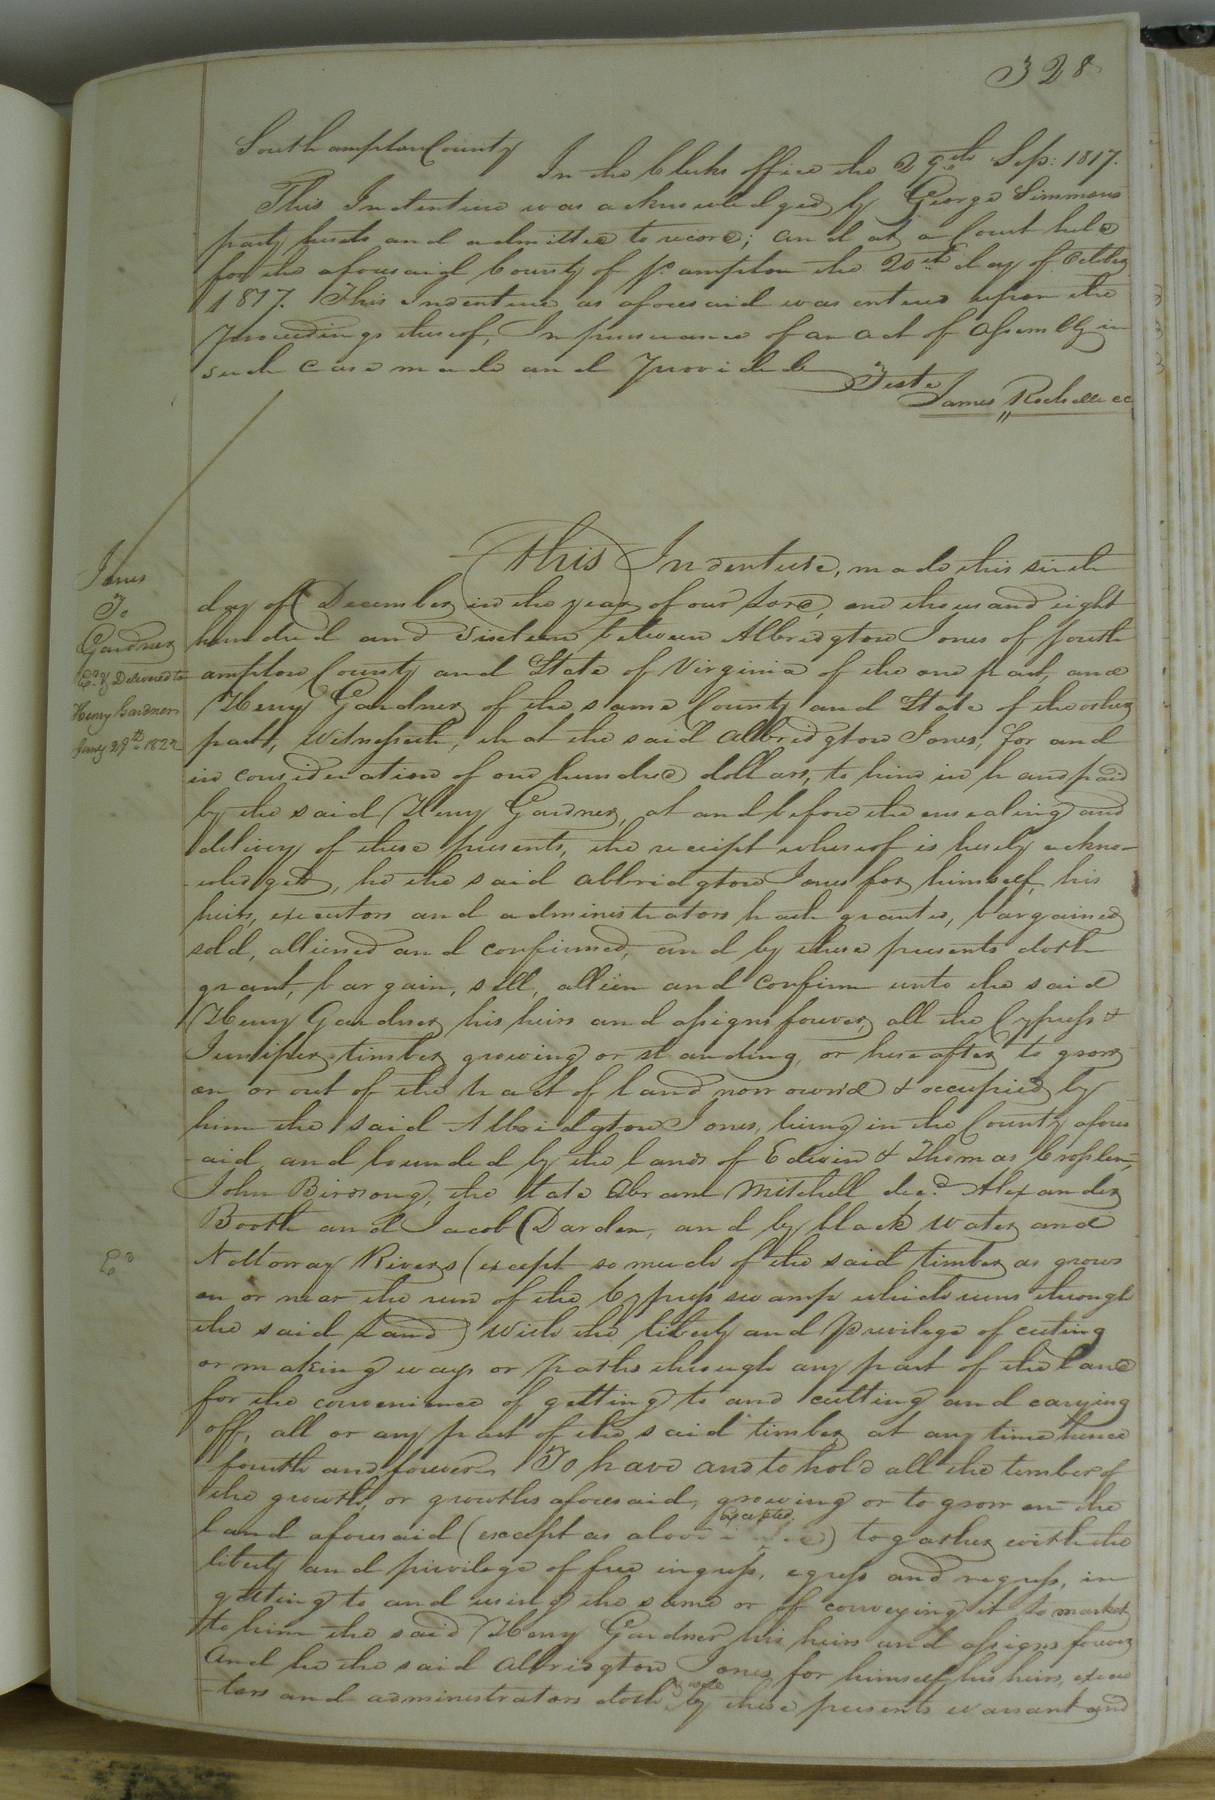 328
Southampton County
In the Clerks office the 29th Sep: 1817.
This Indenture was acknowledged by George Simmons
party hereto and admitted to record; and at a Court held
for the aforesaid County of So ampton the 20th day of October
1817. This Indenture as aforesaid was entered upon the
proceedings thereof, In pursuance of an act of Assembly in
such case made and Provided
Teste
James Rochelle cc
Jones
To
Gardner
Ed. & Delivered to
Henry Gardner
Jany 29th 1822
This Indenture, made this sixth
day of December in the year of our Lord, one thousand eight
hundred and Sixteen between Albridgton Jones of South
ampton County and State of Virginia of the one part, and
Henry Gardner of the same County and State of the other
part, Witnesseth, that the said Albridgton Jones, for and
in consideration of one hundred dollars, to him in hand paid
by the said Henry Gardner, at and before the ensealing and
delivery of these presents, the receipt whereof is hereby ackno-
-wledged, he the said Albridgton Jones for himself, his
heirs, executors and administrators hath granted, bargained
sold, alliened and confirmed, and by these presents doth
grant, bargain, sell, allien and confirm unto the said
Henry Gardner, his heirs and assigns forever, all the Cypress &
Juniper timber growing or standing, or hereafter to grow
on or out of the tract of land now owned & occupied by
him the said Albridgton Jones, lying in the County afores
-aid, and bounded by the lands of Edwin & Thomas Croplen,
John Birdsong, the late Abram Mitchell decd. Alexander
Booth and Jacob Darden, and by black water and
Nottoway Rivers (except so much of the said timber as grows
on or near the run of the Cypress swamp which runs through
the said Land) With the liberty and Privilege of cuting
or making ways or paths through any part of the land
for the convenience of getting to and cutting and carying
off, all or any part of the said timber at any time hence
fourth and forever. To have and to hold all the timber of
the growth, or growths aforesaid, growing or to grow on the
excepted
land aforesaid (except as above) togather with the
liberty and privilege of free ingress, egress and regress, in
getting to and using the same or of conveying it to market
to him the said Henry Gardner, his heirs and assigns forever
And he the said Albridgton Jones for himself, his heirs, execu
-tors and administrators doth by these presents warrant and
Ed